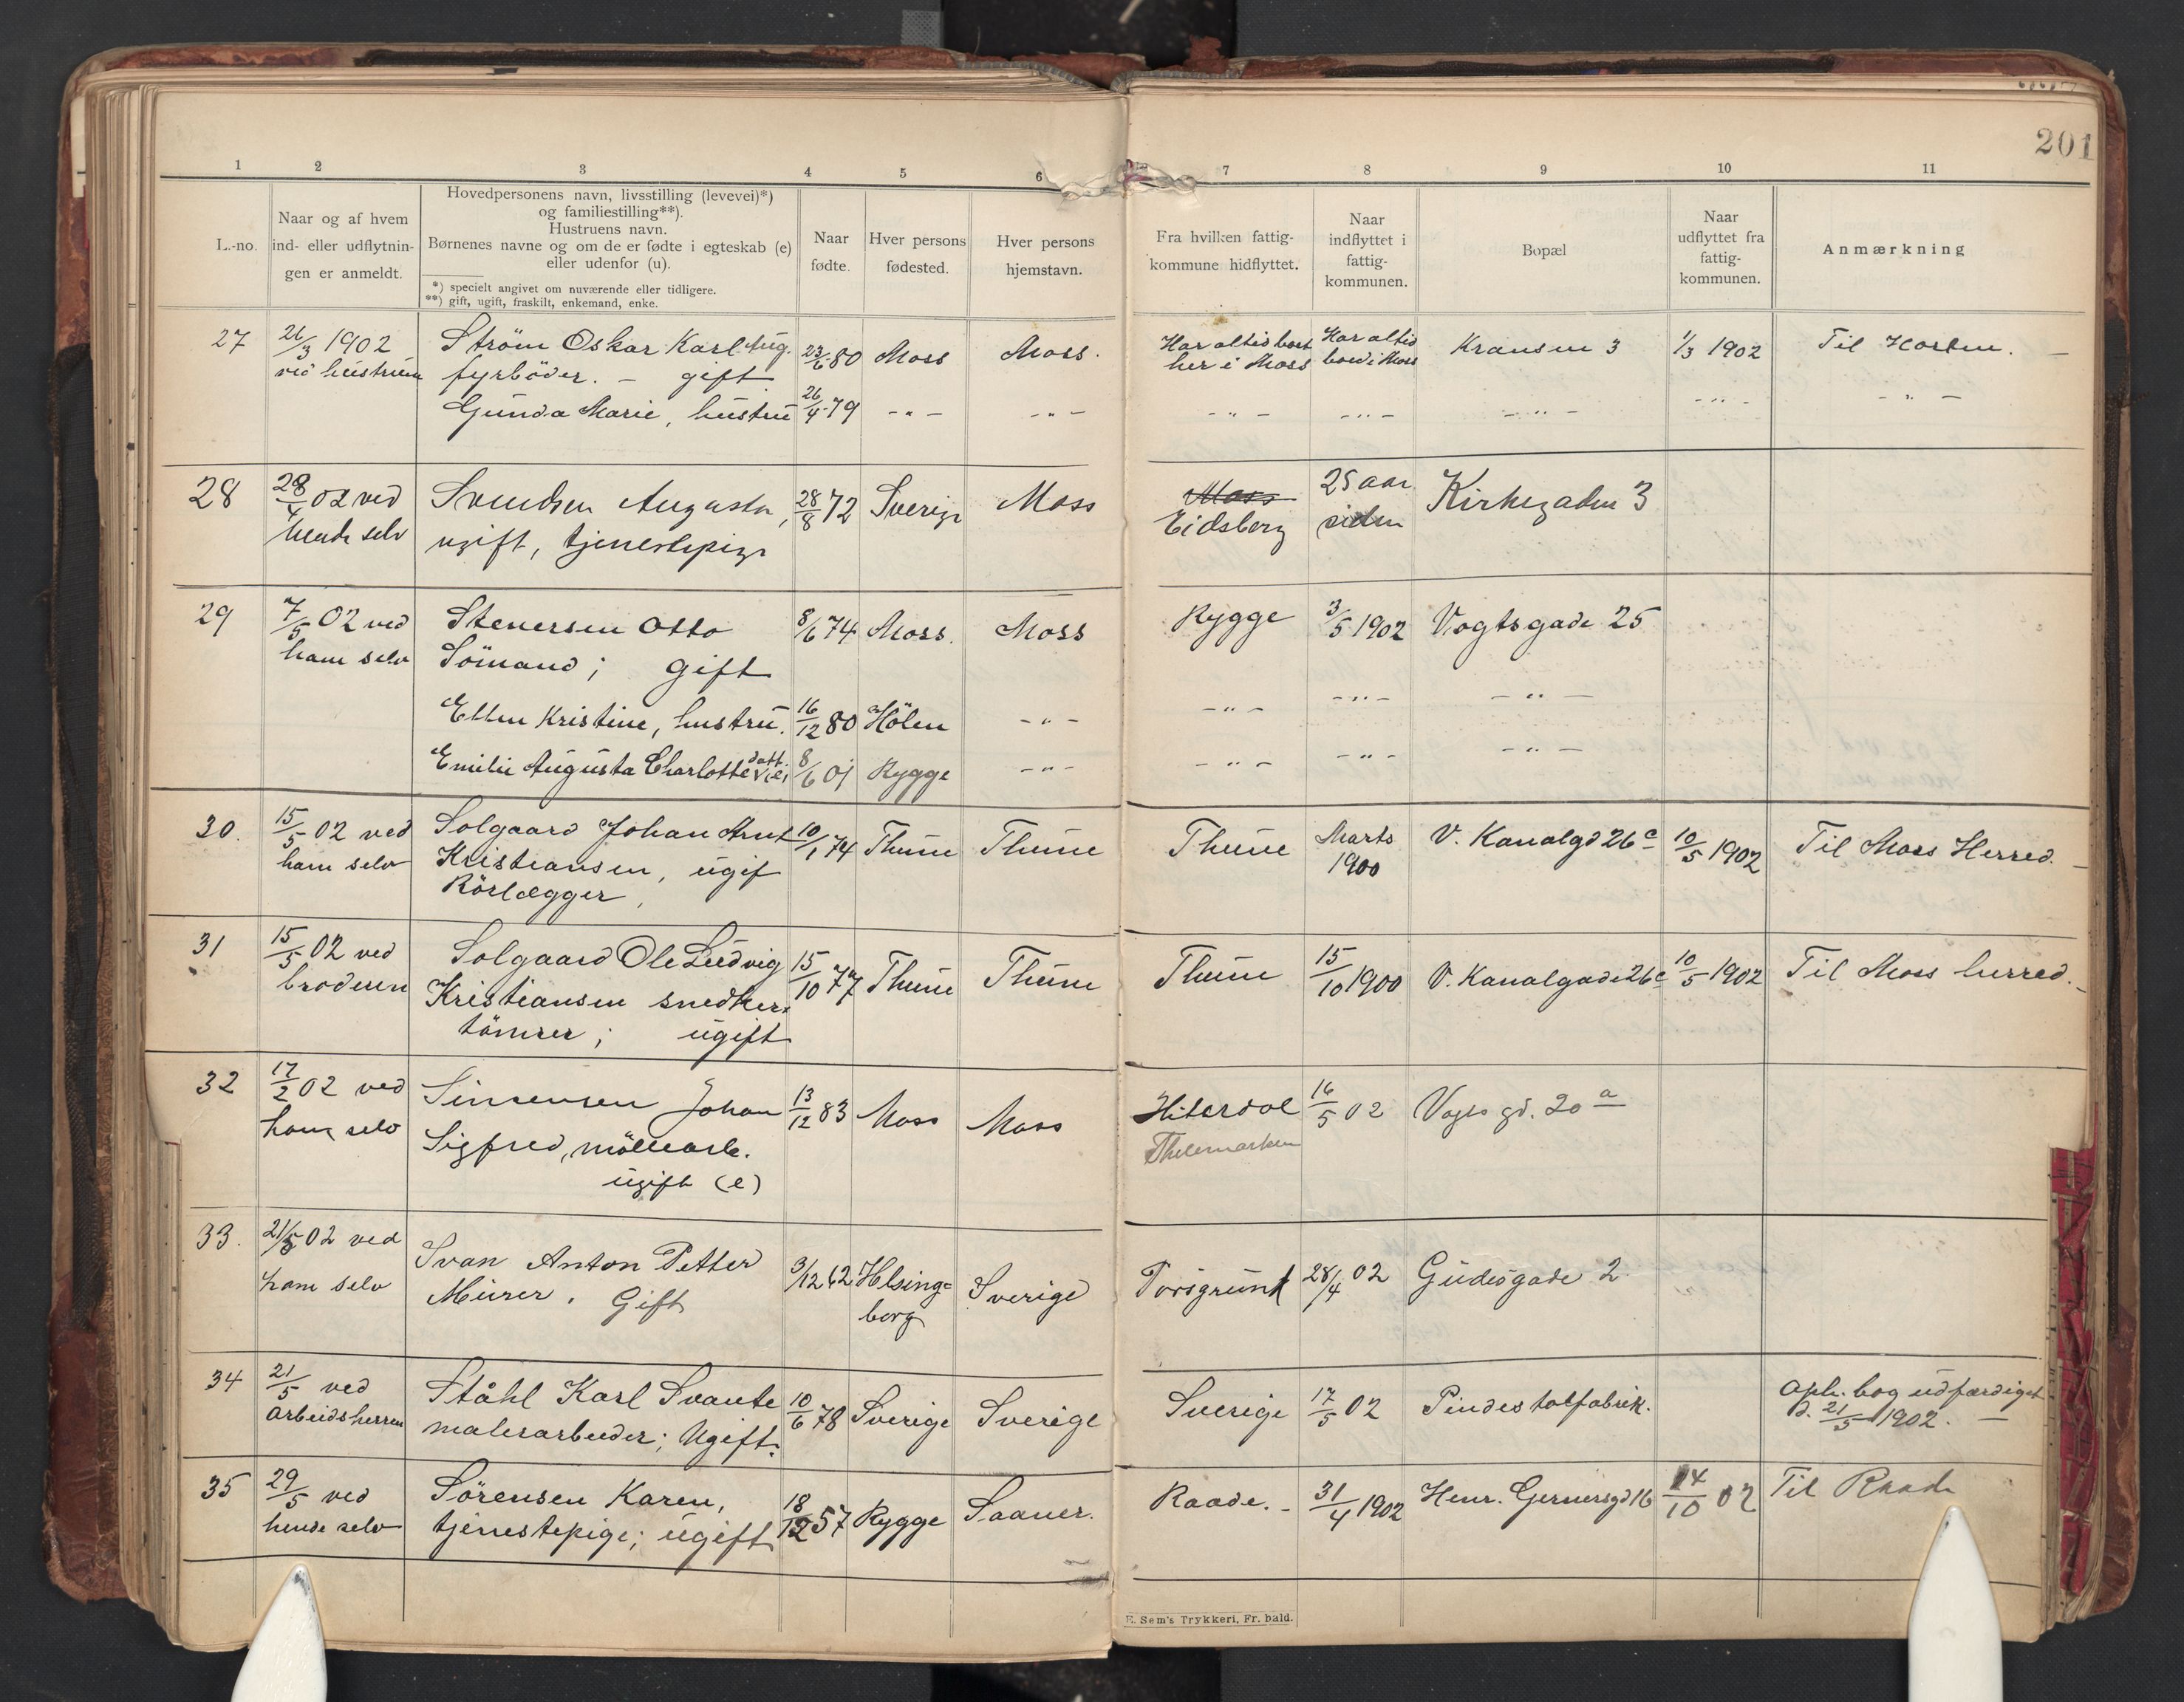 201
1 2 3 4 5 6 7 8 9 10 11
L.-no.
Naar og af hvem
ind- eller udflytnin-
gen er anmeldt.
Hovedpersonens navn, livsstilling (levevei)*)
og familiestilling**).
Hustruens navn.
Børnenes navne og om de er fødte i egteskab (e)
eller udenfor (u).
*) specielt angivet om nuværende eller tidligere.
**) gift, ugift, fraskilt, enkemand, enke.
Naar
fødte.
Hver persons
fødested.
Hver persons
hjemstavn.
Fra hvilken fattig-
kommune hidflyttet.
Naar
indflyttet i
fattig-
kommunen.
Bopæl
Naar
udflyttet fra
fattig-
kommunen.
Anmærkning
27 26/3 1902 Strøm Oskar Karl Aug. 23/6 80 Moss Moss. Har altid boet Har altid Kransen 3 1/3 1902 Til Horten. —
ved hustruen fyrböder. – gift her i Moss boed i Moss
Gunda Marie, hustru 26/4 79 -"- -"- -"- -"- -"- -"- -"-
28 28/4 02 ved Svendsen Augusta, 28/8 72 Sverige Moss Moss 25 aar Kirkegaden 3
hende selv ugift, tjenestepige Eidsberg siden
29 7/5 02 ved Stenersen Otto 8/6 74 Moss. Moss Rygge 3/5 1902 Vogtsgade 25
ham selv Sömand; gift
Ellen Kristine, hustru. 16/12 80 Hölen -"- -"- -"- -"-
Emilie Augusta Charlotte datt. (e) 8/6 01 Rygge -"- -"- -"- -"-
30. 15/5 02 ved Solgaard Johan Arnt 10/1 74 Thune Thune Thune Marts V. Kanalgd 26c 10/5 1902 Til Moss Herred. –
ham selv Kristiansen, ugif 1900
Rörlægger,
31 15/5 02 ved Solgaard Ole Ludvig 15/10 77 Thune Thune Thune 15/10 1900 V. Kanalgade 26c 10/5 1902 Til Moss herred. –
broderen Kristiansen snedker
tömrer; ugift
32 17/2 02 ved Simensen Johan 13/12 83 Moss Moss Hiterdal 16/5 02 Vogts gd. 20 a
ham selv Sigfred, möllearb. Thelemarken
ugift (e)
33. 21/5 02 ved Svan Anton Petter 3/12 62 Helsing= Sverige Porsgrund 28/4 02 Gudesgade 2.
ham selv Murer. Gift borg
34 21/5 ved Ståhl Karl Svante 10/6 78 Sverige Sverige Sverige 17/5 02 Pindestolfabrik. Oph. bog udfærdiget
arbeidsherren malerarbeider; Ugift. d. 21/5 1902. —
35 29/5 ved Sörensen Karen, 18/12 57 Rygge Saaner. Raade. – 31/4 1902 Henr. Gernersgd 16 14/10 02 Til Raade
hende selv tjenestepige; ugift
E. Sem's Trykkeri, Fr. hald.